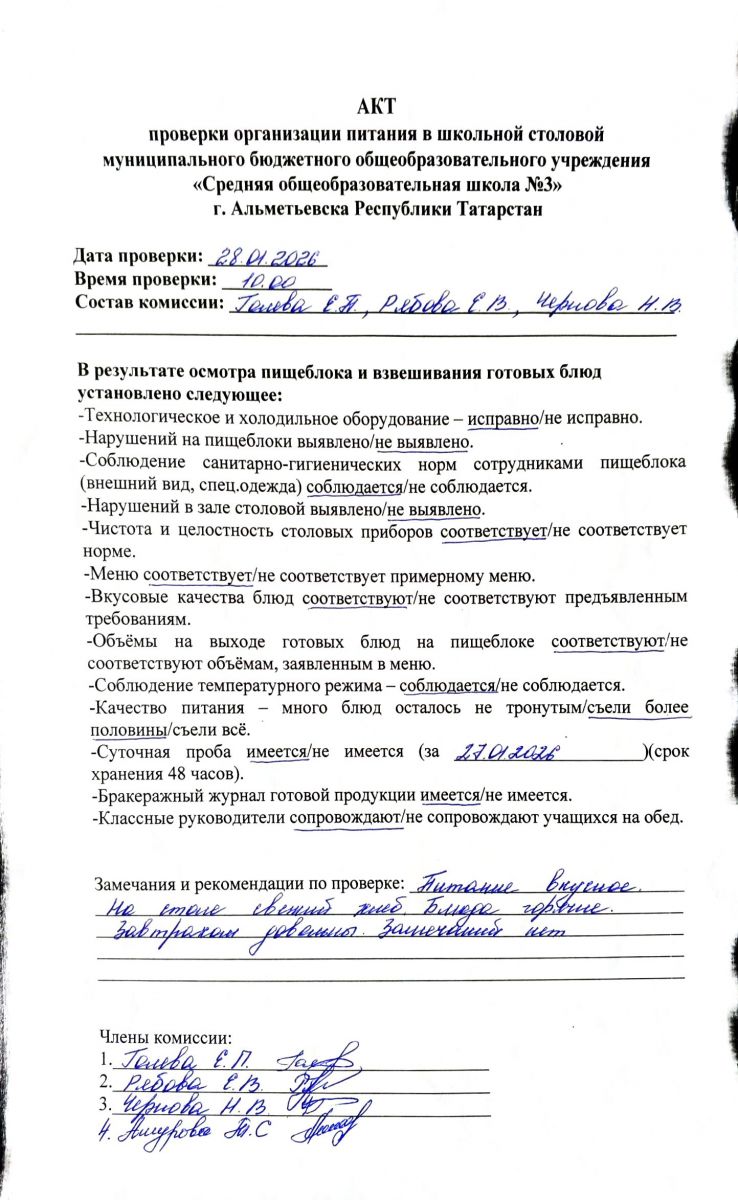 АКТ
проверки организации питания в школьной столовой
муниципального бюджетного общеобразовательного учреждения
«Средняя общеобразовательная школа №3»
г. Альметьевска Республики Татарстан
Дата проверки: 28.01.2026
Время проверки: 10.00
Состав комиссии: Голева Е.П., Рябова Е.В., Чернова Н.В.
В результате осмотра пищеблока и взвешивания готовых блюд
установлено следующее:
-Технологическое и холодильное оборудование – исправно/не исправно.
-Нарушений на пищеблоки выявлено/не выявлено.
-Соблюдение санитарно-гигиенических норм сотрудниками пищеблока
(внешний вид, спец.одежда) соблюдается/не соблюдается.
-Нарушений в зале столовой выявлено/не выявлено.
-Чистота и целостность столовых приборов соответствует/не соответствует
норме.
-Меню соответствует/не соответствует примерному меню.
-Вкусовые качества блюд соответствуют/не соответствуют предъявленным
требованиям.
-Объёмы на выходе готовых блюд на пищеблоке соответствуют/не
соответствуют объёмам, заявленным в меню.
-Соблюдение температурного режима – соблюдается/не соблюдается.
-Качество питания – много блюд осталось не тронутым/съели более
половины/съели всё.
-Суточная проба имеется/не имеется (за 27.01.2026 )(срок
хранения 48 часов).
-Бракеражный журнал готовой продукции имеется/не имеется.
-Классные руководители сопровождают/не сопровождают учащихся на обед.
Замечания и рекомендации по проверке: Питание вкусное.
На столе свежий хлеб. Блюда горячие.
Завтраком довольны. Замечаний нет
Члены комиссии:
1. Голева Е.П.
2. Рябова Е.В.
3. Чернова Н.В.
4. Амурова Т.С